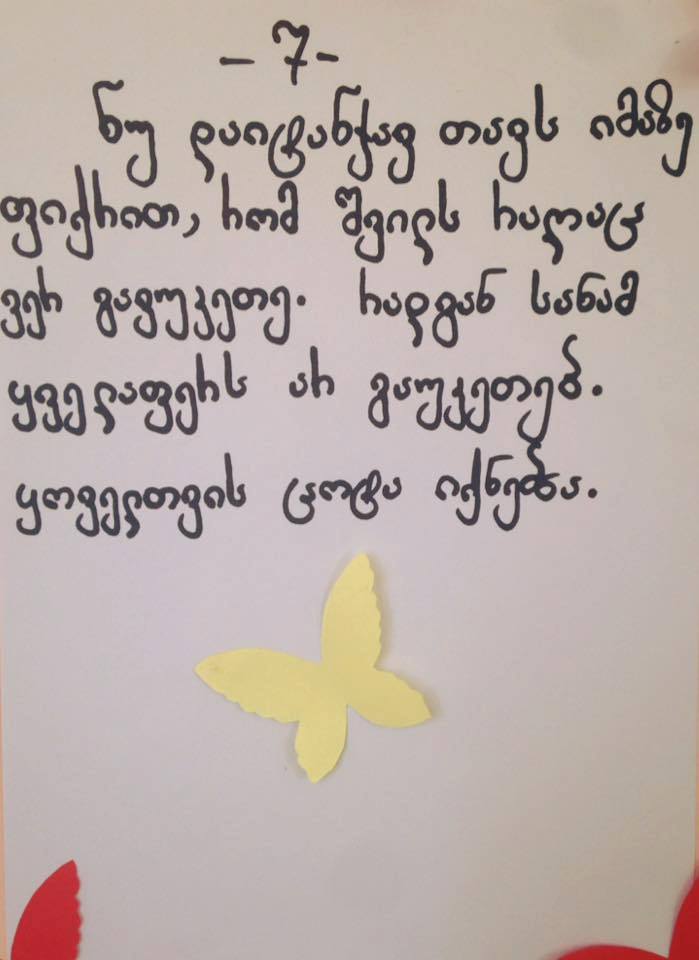 - 7 -
ნუ დაიტანჯავ თავს იმაზე
ფიქრით, რომ შვილს რაღაც
ვერ გავუკეთე. რადგან სანამ
ყველაფერს არ გაუკეთებ.
ყოველთვის ცოტა იქნება.